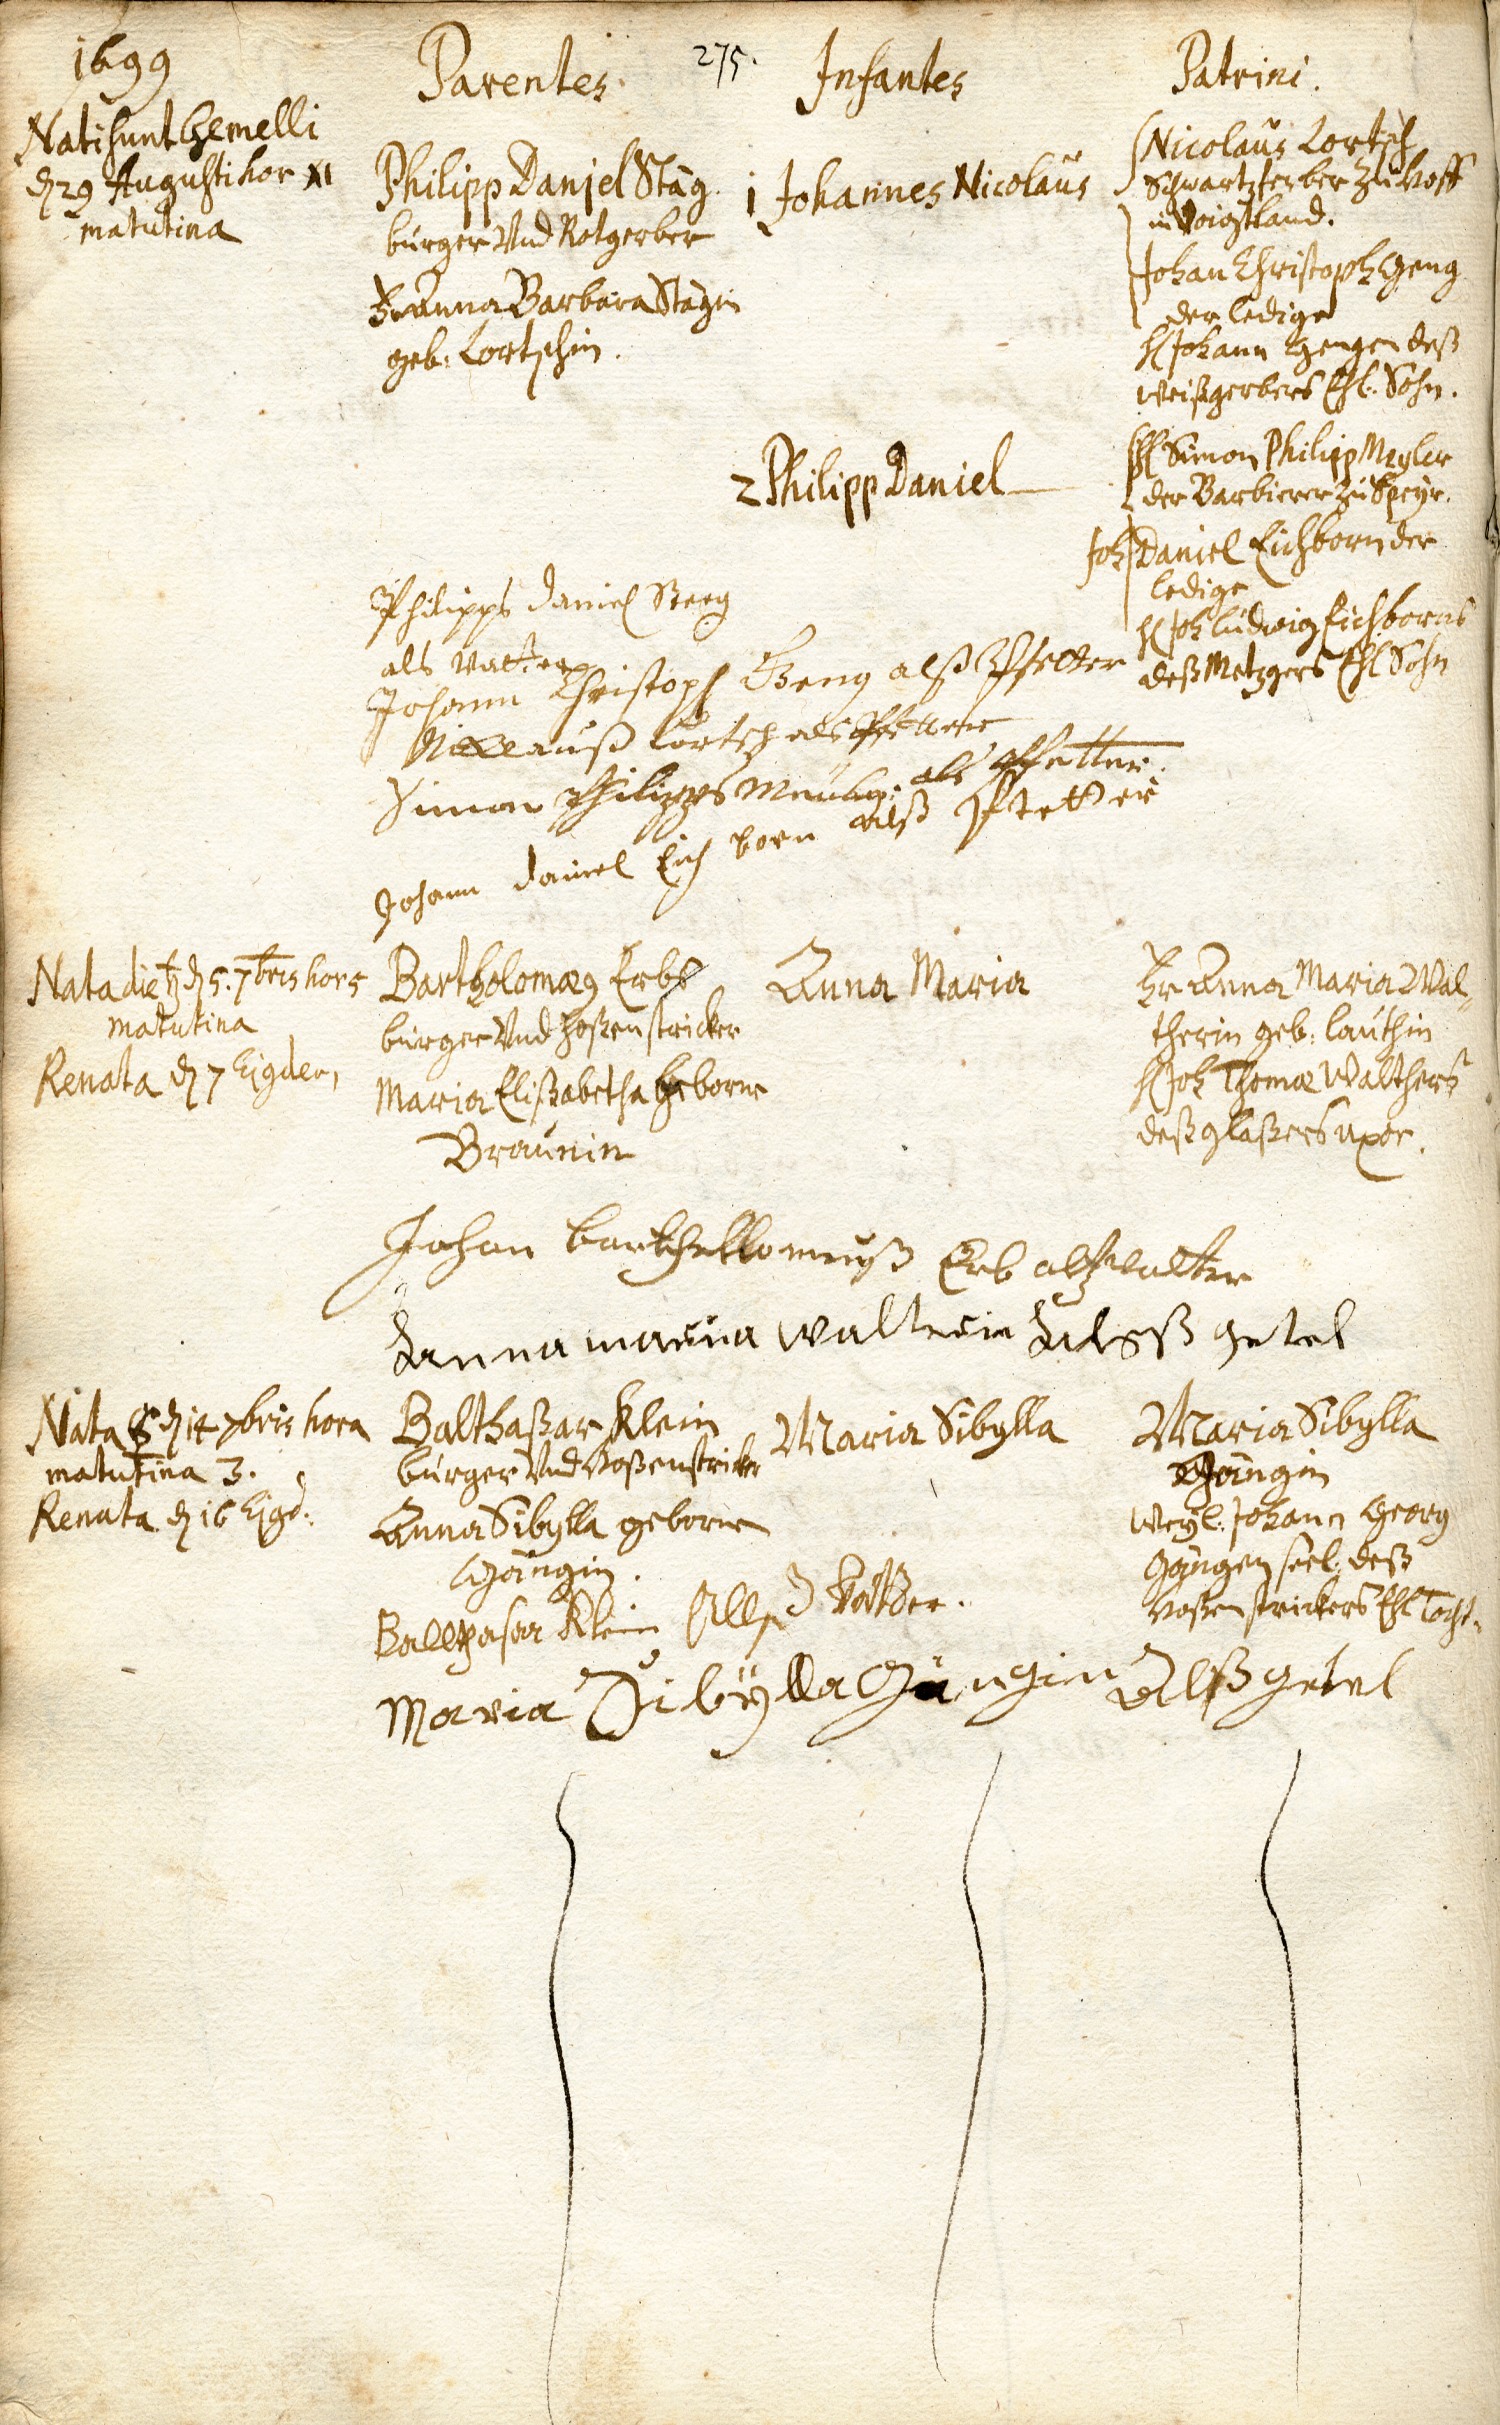 1699
Parentes.
275.
Infantes
Patrini.
Nati sunt Gemelli
d 29 Augusti hor XI
matutina
Philipp Daniel Stäg.
burger Und Rotgerber
Fr Anna Barbara Stägin
geb. Lortschin.
1 Johannes Nicolaus
Nicolaus Lortsch
Schwartzferber zu Hoff
in Voigtland.
Johan Christoph Geng
der ledige
H Johann Gengen deß
weißgerbers Ehl. Sohn.
2 Philipp Daniel
H Simon Philipp
der Barbierer zu Speyr.
Joh Daniel Eichborn der
ledige
H Joh Ludwig Eichborns
deß Metzgers Ehl Sohn
Philipps Daniel Steeg
als Vatter
Johann Christoph Geng alß Pfetter
Nicklauß Lortsch als Pfetter
Simon Philipps als Pfetter.
Johann Daniel Eich born alß Pfetter
Nata die ♄ d 5. 7bris hor 5
matutina
Renata d 7 Ejgdem
Bartholomæ9 Erbs
burger Und hoßenstricker
Maria Elißabetha Geborne
Braunin
Anna Maria
Fr Anna Maria Wal-
therin geb: Lauthin
H Joh Thomæ Walthers
deß glaßers uxor.
Johan barthollomeuß Erb alß Vatter
Anna maria waltrin Alß getel
Nata d 14 7bris hora
matutina 3.
Renata d 16 Ejgd.
Balthaßar Klein
burger Und Hoßenstricker
Anna Sibylla geborne
Gängin.
Maria Sibylla
Maria Sibylla
Gängin
Weyl. Johann Georg
Gängen seel. deß
Hoßenstrickers Ehl Tocht.
Ballthasar Klein Allß Vatter.
Maria Sibÿlla Gängin Alß getel